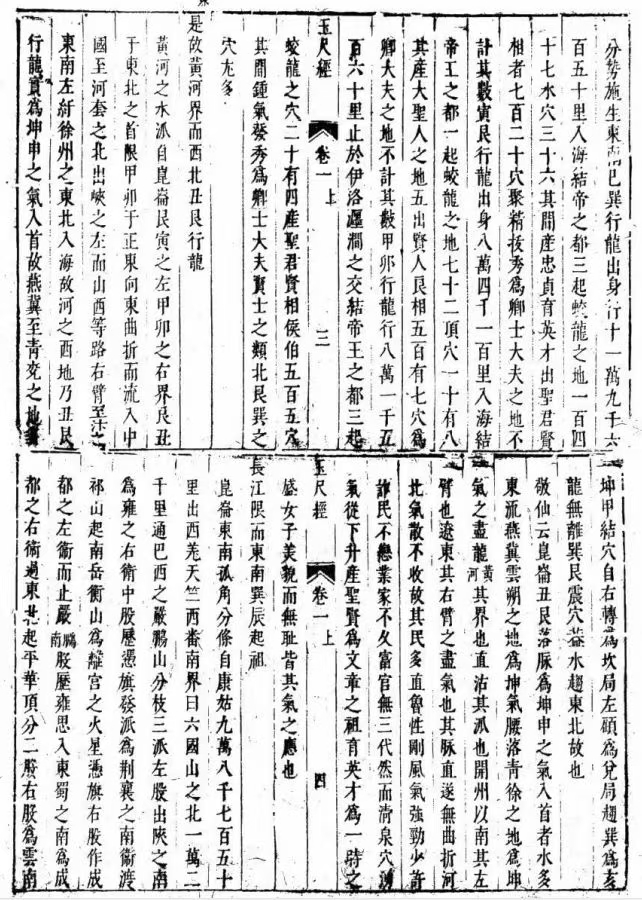 分勢施生東南巴巽行龍出身行十一萬九千六
百五十里入海結帝之都三起蛟龍之地一百四
十七水穴三十六其間產忠貞育英才出聖君賢
相者七百二十穴聚精拔秀爲卿士大夫之地不
計其數寅艮行龍出身八萬四千一百里入海結
帝王之都一起蛟龍之地七十二頂穴一十有八
其產大聖人之地五出賢人良相五百有七穴爲
卿大夫之地不計其數甲卯行龍行八萬一千五
百六十里止於伊洛瀍澗之交結帝王之都三起
玉尺經 卷一上 三
蛟龍之穴二十有四產聖君賢相侯伯五百五穴
其間鍾氣發秀爲卿士大夫賢士之類北艮巽之
穴尤多
是故黃河界而西北丑艮行龍
黃河之水派自崑崙艮寅之左甲卯之右界艮丑
于東北之首限甲卯于正東向東曲折而流入中
國至河套之北出峽之左而山西等路右臂至
東南左紆徐州之東北入海故河之西地乃丑艮
行龍實爲坤申之氣入首故燕冀至青兗之地
坤甲結穴自右轉爲坎局左碩爲兌局趨巽爲亥
龍無離巽艮震穴葢水趨東北故也
敬仙云崑崙丑艮落脉爲坤申之氣入首者水多
東流燕冀雲朔之地爲坤氣腰落青徐之地爲坤
氣之盡龍黃河其界也直沽其派也開州以南其左
臂也遼東其右臂之盡氣也其脉直遂無曲折河
北氣散不收故其民多直魯性剛風氣強勁少許
詐民不戀業家不久富官無三代然而清泉穴湧
氣從下升產聖賢爲文章之祖育英才爲一時之
玉尺經 卷一上 四
盛女子美貌而無耻皆其氣之應也
長江限而東南巽辰起祖
崑崙東南孤角分條自康姑九萬八千七百五十
里出西羌天竺西番南界曰六國山之北一萬二
千里通巴西之嚴鵬山分枝三派左股出陝之南
爲雍之右衛中股歷憑旗發派爲荆襄之南衛渡
祁山起南岳衡山爲離宮之火星憑旗右股作成
都之左衛而止嚴鵬南股歷雍思入東蜀之南爲成
都之右衛過東北起平華頂分二股右股爲雲南